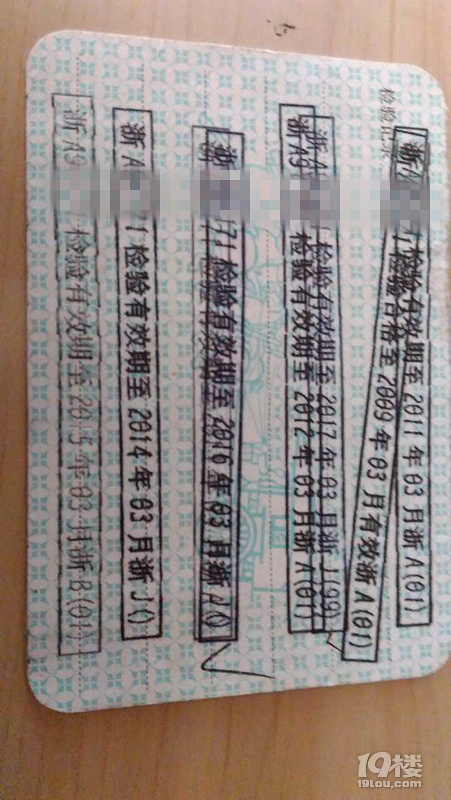 检验记录
浙A 检验有效期至 2011 年 03 月浙 A(01)
检验合格至 2009 年 03 月有效浙 A(01)
浙A 检验有效期至 2017 年 03 月浙 J(99)
浙A9 检验有效期至 2012 年 03 月浙 A(01)
浙 71 检验有效期至 2016 年 03 月浙 J()
浙A 71 检验有效期至 2014 年 03 月浙 J()
浙A9 检验有效期至 2015 年 03 月浙 B(01)
19楼
19lou.com